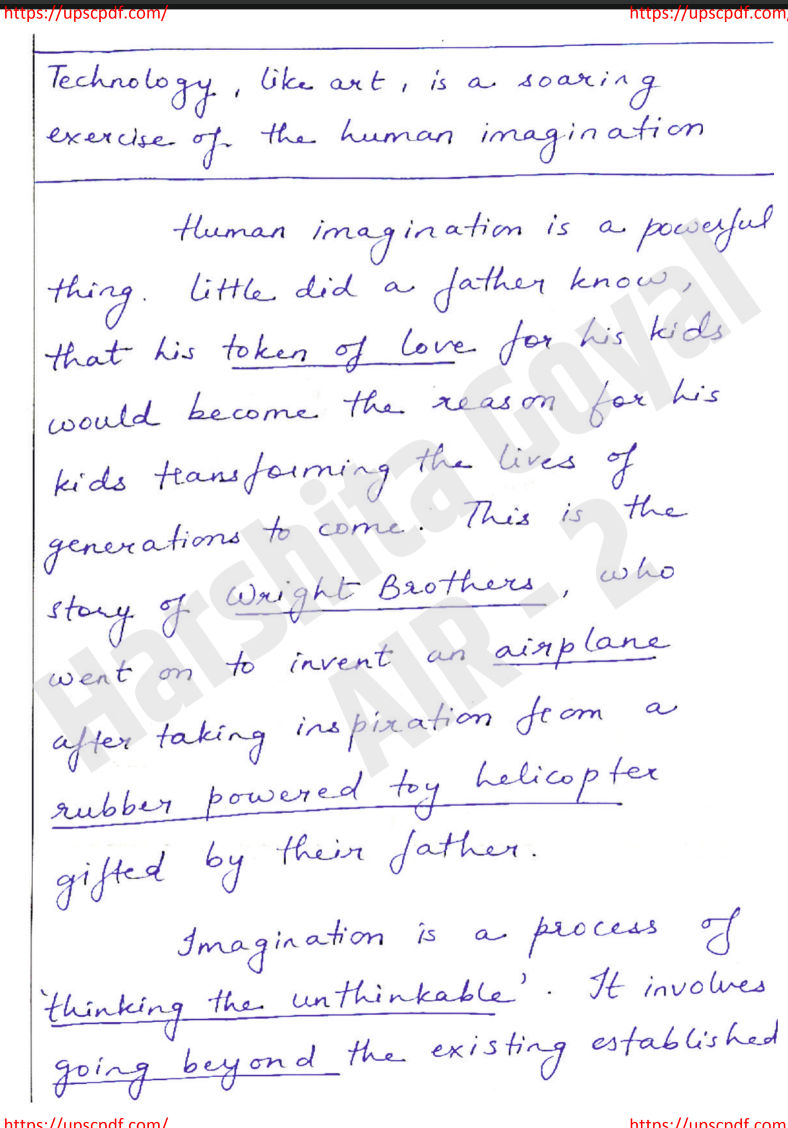 https://upscpdf.com/ https://upscpdf.com/
Technology, like art, is a soaring
exercise of the human imagination
Human imagination is a powerful
thing. Little did a father know,
that his token of love for his kids
would become the reason for his
kids transforming the lives of
generations to come. This is the
story of Wright Brothers, who
went on to invent an airplane
after taking inspiration from a
rubber powered toy helicopter
gifted by their father.
Imagination is a process of
'thinking the unthinkable'. It involves
going beyond the existing established
Harshita Goyal
AIR - 2
https://upscpdf.com/ https://upscpdf.com/